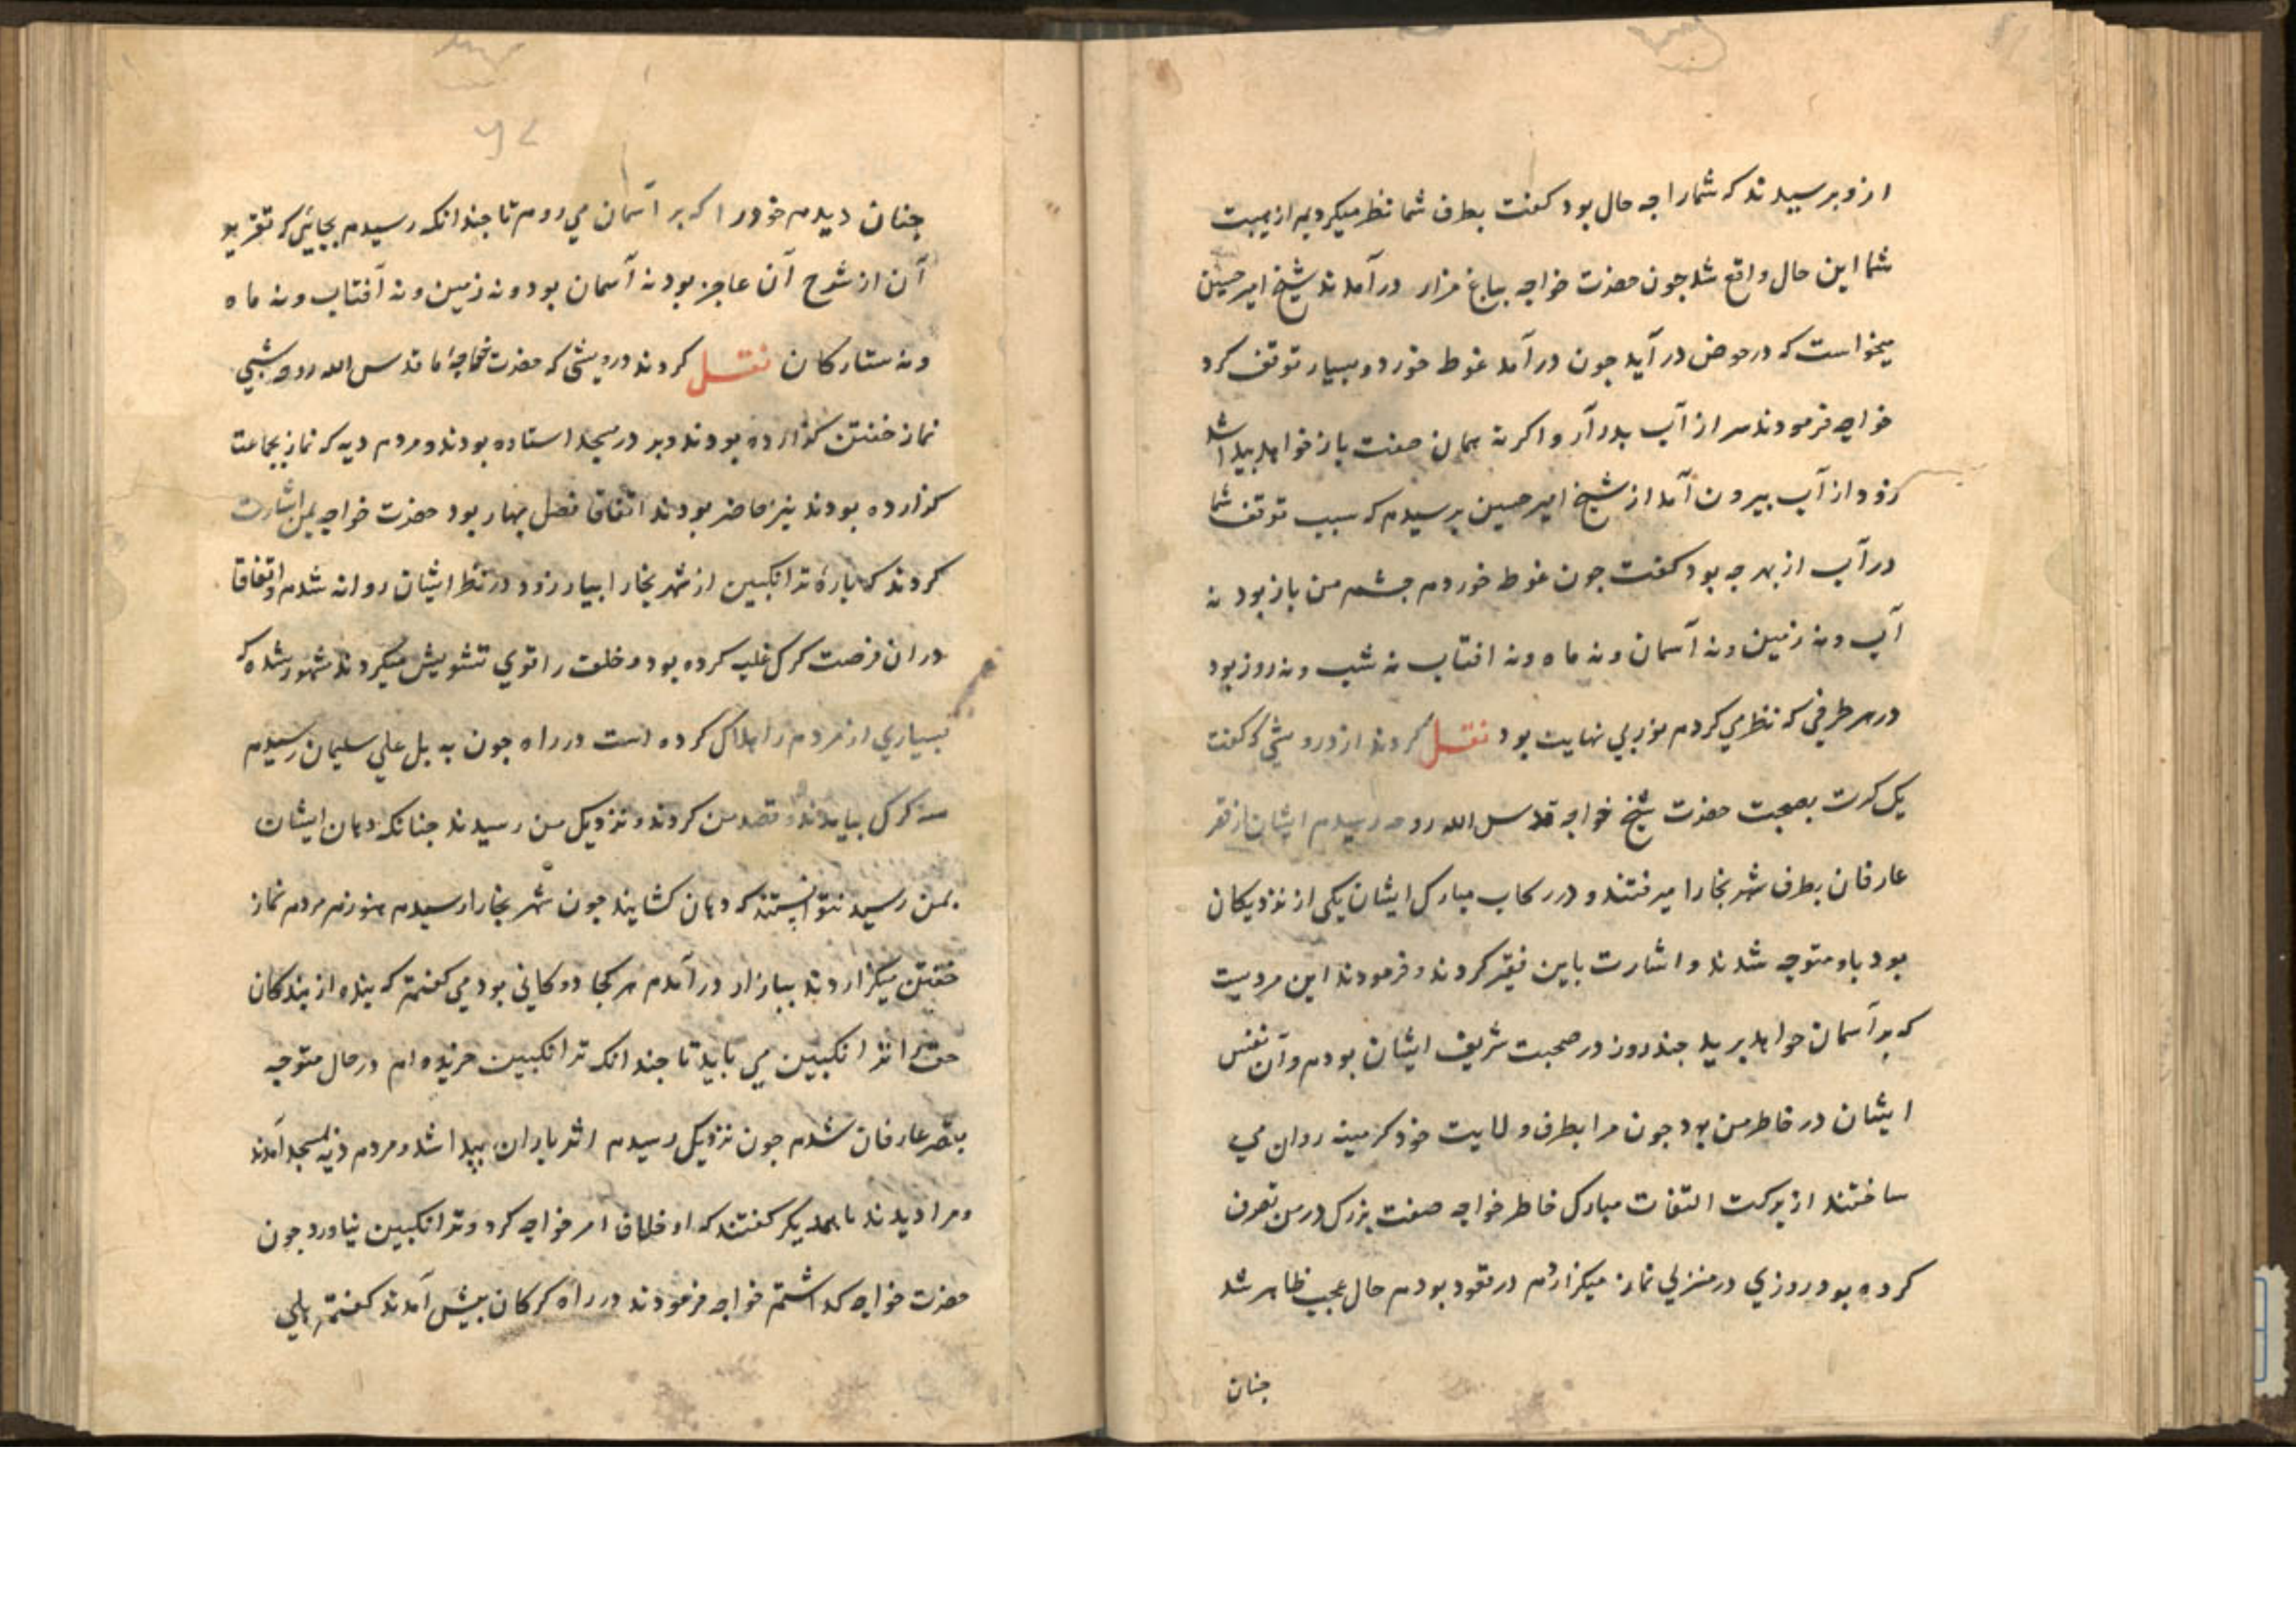 ازو برسیدند که شمارا جه حال بود کفت بطرف شما نظر میکردیم از هیبت
شما این حال واقع شد جون حضرت خواجه بباغ مزار درآمدند شیخ امیر حسین
میخواست که در حوض درآید جون درآمد غوط خورد و بسیار توقف کرد
خواجه فرمودند سر از آب بدر آر واکرنه همان صفت باز خواهد بیدا شد
زود از آب بیرون آمد از شیخ امیر حسین برسیدم که سبب توقف شما
در آب از بهر جه بود کفت جون غوط خوردم جشم من باز بود نه
آب و نه زمین و نه آسمان و نه ماه و نه افتاب نه شب و نه روز بود
در هر طرفی که نظر می کردم نور بی نهایت بود نقل کردند از درویشی که کفت
یک کرت بصحبت حضرت شیخ خواجه قدس الله روحه رسیدم ایشان از قصر
عارفان بطرف شهر بخارا میرفتند و در رکاب مبارک ایشان یکی از نزدیکان
بود باو متوجه شدند و اشارت باین فقیر کردند و فرمودند این مردیست
که بر آسمان خواهد برید جند روز در صحبت شریف ایشان بودم و آن نفس
ایشان در خاطر من بود جون مرا بطرف ولایت خود کرمینه روان می
ساختند از برکت التفات مبارک خاطر خواجه صفت بزرک در من تصرف
کرده بود روزی در منزلی نماز میکزاردم در قعود بودم حال عجیب ظاهر شد
جنان
جنان دیدم خودرا که بر آسمان می روم تا جندانکه رسیدم بجایی که تقریر
آن از شرح آن عاجز بود نه آسمان بود و نه زمین و نه آفتاب و نه ماه
و نه ستارکان نقل کردند درویشی که حضرت خواجهٔ ما قدس الله روحه شبی
نماز خفتن کزارده بودند و بر در مسجد استاده بودند و مردم دیه که نماز بجماعت
کزارده بودند نیز حاضر بودند اتفاقا فصل بهار بود حضرت خواجه بمن اشارت
کردند که بارهٔ ترانکبین از شهر بخارا بیار زود در نظر ایشان روانه شدم و اتفاقا
دران فرصت کرک غلبه کرده بود و خلق را قوی تشویش میکردند مشهور شده که
بسیاری از مردم را هلاک کرده است در راه جون به بل علی سلیمان رسیدم
سه کرک بیامدند و قصد من کردند و نزدیک من رسیدند جنانکه دهان ایشان
بمن رسید نتوانستند که دهان کشایند جون شهر بخارا رسیدم هنوز مردم نماز
خفتن میکزاردند ببازار درآمدم هر کجا دوکانی بود می کفتم که بنده از بندکان
حق را ترانکبین می باید تا جندانک ترانکبین خریده ام در حال متوجه
بقصر عارفان شدم جون نزدیک رسیدم اثر باران بیدا شد و مردم دیه بمسجد آمدند
و مرا دیدند با همدیکر کفتند که او خلاف امر خواجه کرد و ترانکبین نیاورد جون
حضرت خواجه کداشتم خواجه فرمودند در راه کرکان بیش آمدند کفتم بلی